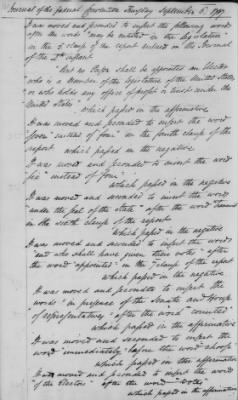 Journal of the federal Convention Thursday September 6. 1787.
It was moved and seconded to insert the following words
after the words "may be entitled in the Legislature"
in the 5 clause of the report entered on the Journal
of the 4th instant
"But no Person shall be appointed an Elector
who is a member of the Legislature of the United States
or who holds any office of profit or trust under the
United States"
which passed in the affirmative
It was moved and seconded to insert the word
"seven" instead of "four" in the fourth clause of the
report which passed in the negative
It was moved and seconded to insert the word
"six" instead of "four"
which passed in the negative
It was moved and seconded to insert the words
"under the Seal of the State" after the word "transmit"
in the sixth clause of the report
which passed in the negative
It was moved and seconded to insert the words
"and who shall have given their votes" after
the word "appointed" in the 7 clause of the report
which passed in the negative
It was moved and seconded to insert the
words "in presence of the Senate and House
of representatives" after the word "counted"
which passed in the affirmative
It was moved and seconded to insert the
word "immediately" before the word "choose"
which passed in the affirmative
It was moved and seconded to insert the word
"of the Electors" after the word "votes"
which passed in the affirmative